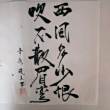 西风多少恨
吹不散眉弯